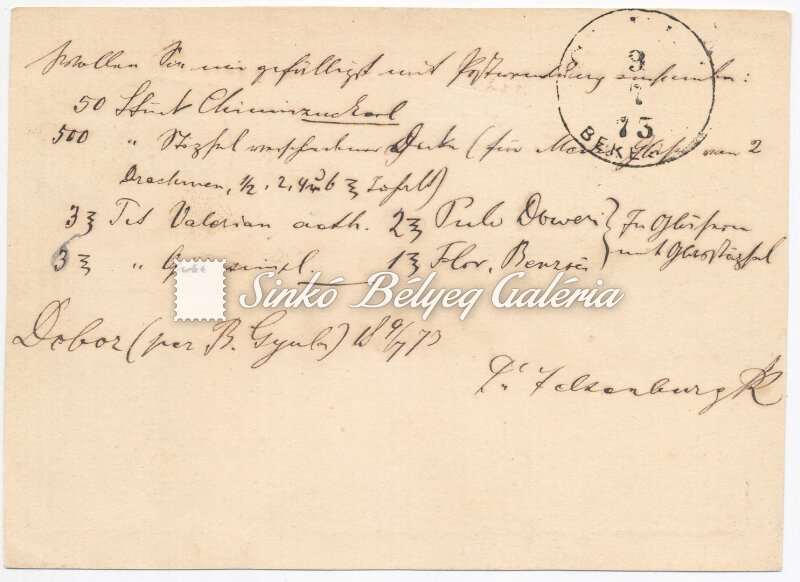 Wollen Sie mir gefälligst mit Postwendung einsenden:
50 Stück Chininzuckerl
500 " Stöpsel verschiedener Dicke (für Glas von 2
Drachmen, 1/2, 2, 4 u 6 ℥ Inhalt)
3℥ Tct Valerian aeth. 2℥ Pulv Doweri } In Gläsern
3℥ " simpl 1℥ Flor. Benzoës } mit Glasstöpsel
Doboz (per B. Gyula) 18 /7 73
Dr Felsenburg
3
7
73
BÉKÉS
Sinkó Bélyeg Galéria